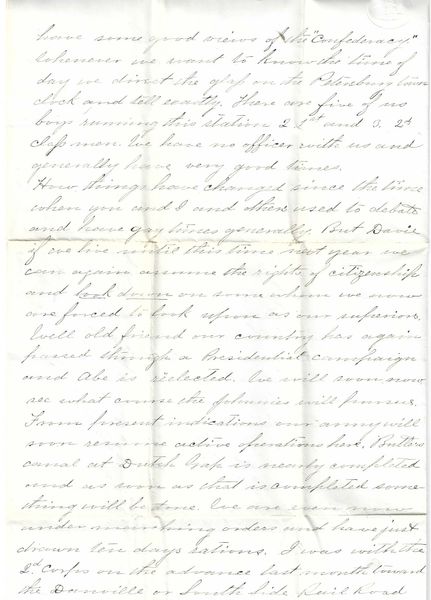 have some good views of the "Confederacy."
Whenever we want to know the time of
day we direct the glass on the Petersburg town
clock and tell exactly. There are five of us
boys running this station 2 1st and 3. 2d
Class men. We have no officer with us and
generally have very good times.
How things have changed since the time
when you and I and others used to debate
and have gay times generally. But Davie
if we live until this time next year we
can again assume the rights of citizenship
and look down on some whom we now
are forced to look upon as our superiors.
Well old friend our country has again
passed through a Presidential campaign
and Abe is reelected. We will soon now
see what course the Johnnies will pursue.
From present indications our army will
soon resume active operations here. Butlers
canal at Dutch Gap is nearly completed
and as soon as that is completed some-
thing will be done. We are even now
under marching orders and have just
drawn ten days rations. I was with the
2d Corps on the advance last month toward
the Danville or South Side Rail Road